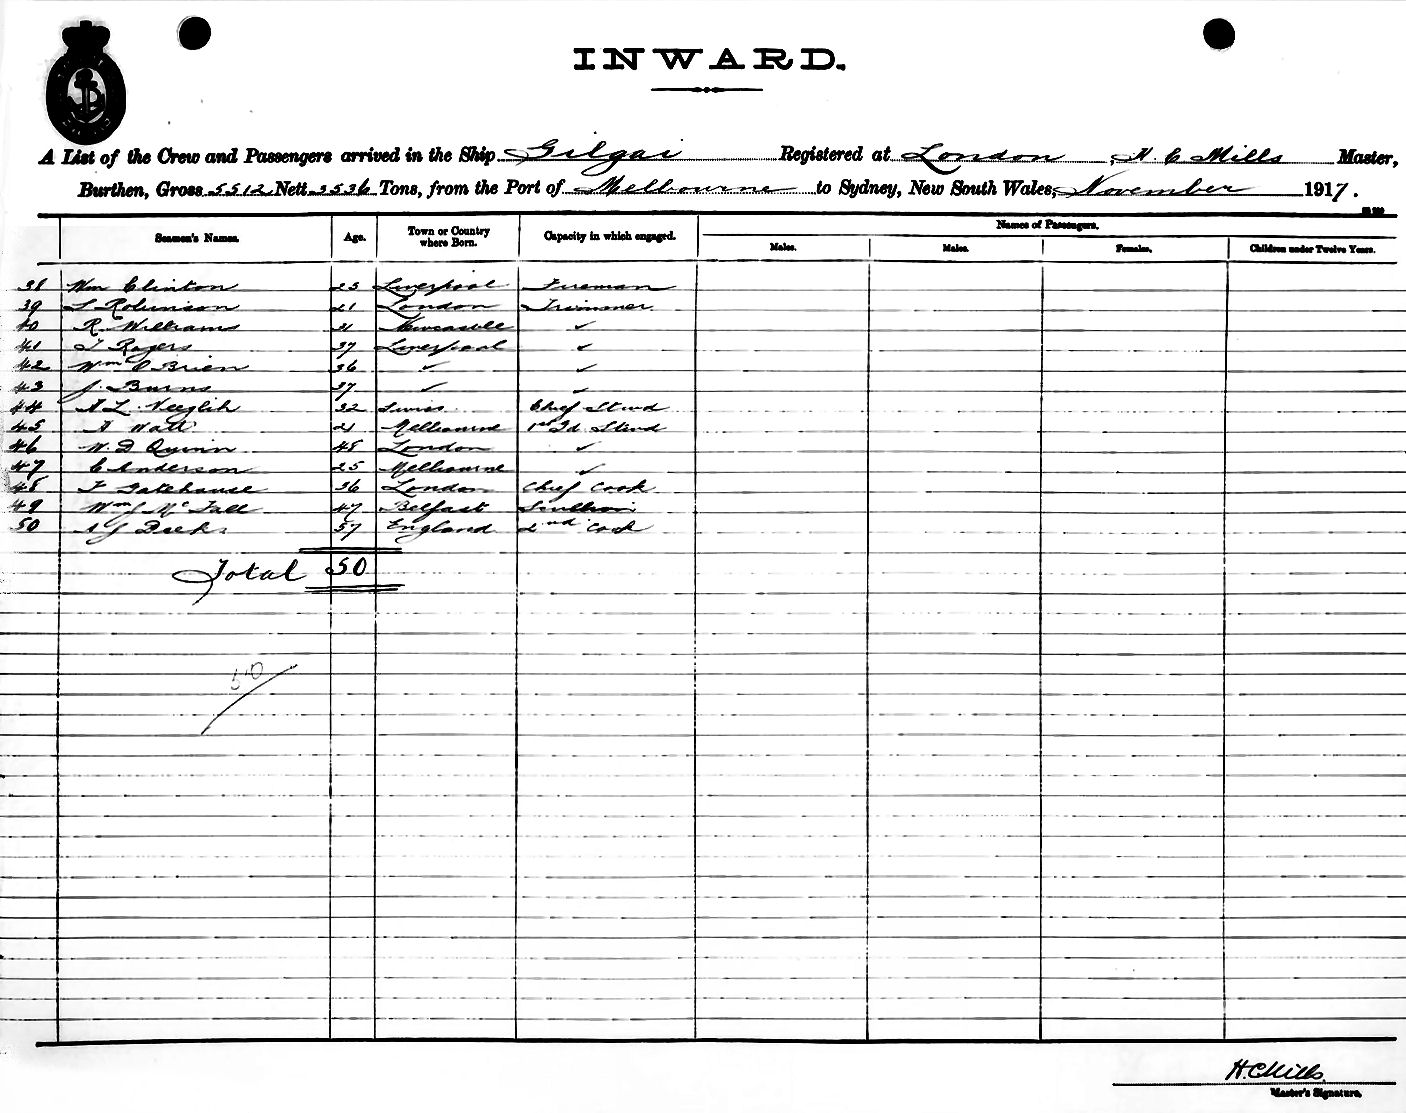 INWARD.
A List of the Crew and Passengers arrived in the Ship Gilgai Registered at London, H. C Mills Master,
Burthen, Gross 5512 Nett 3536 Tons, from the Port of Melbourne to Sydney, New South Wales, November 1917.
Seamen's Names. Age. Town or Country where Born. Capacity in which engaged. Names of Passengers.
Males. Males. Females. Children under Twelve Years.
38 Wm Clinton 23 Liverpool Fireman
39 S Robinson 21 London Trimmer
40 R. Williams 21 Newcastle ✓
41 T Rogers 37 Liverpool ✓
42 Wm O'Brien 36 ✓ ✓
43 J. Burns 37 ✓ ✓
44 A L 32 Swiss Chief Stwd
45 A Watt 21 Melbourne Stwd
46 W. D Quinn 48 London ✓
47 C Anderson 25 Melbourne ✓
48 F Gatehouse 36 London Chief Cook
49 Wm J Mc Fall 47 Belfast Scullion
50 A J 57 England 2nd Cook
Total 50
50
H.C Mills.
Master's Signature.